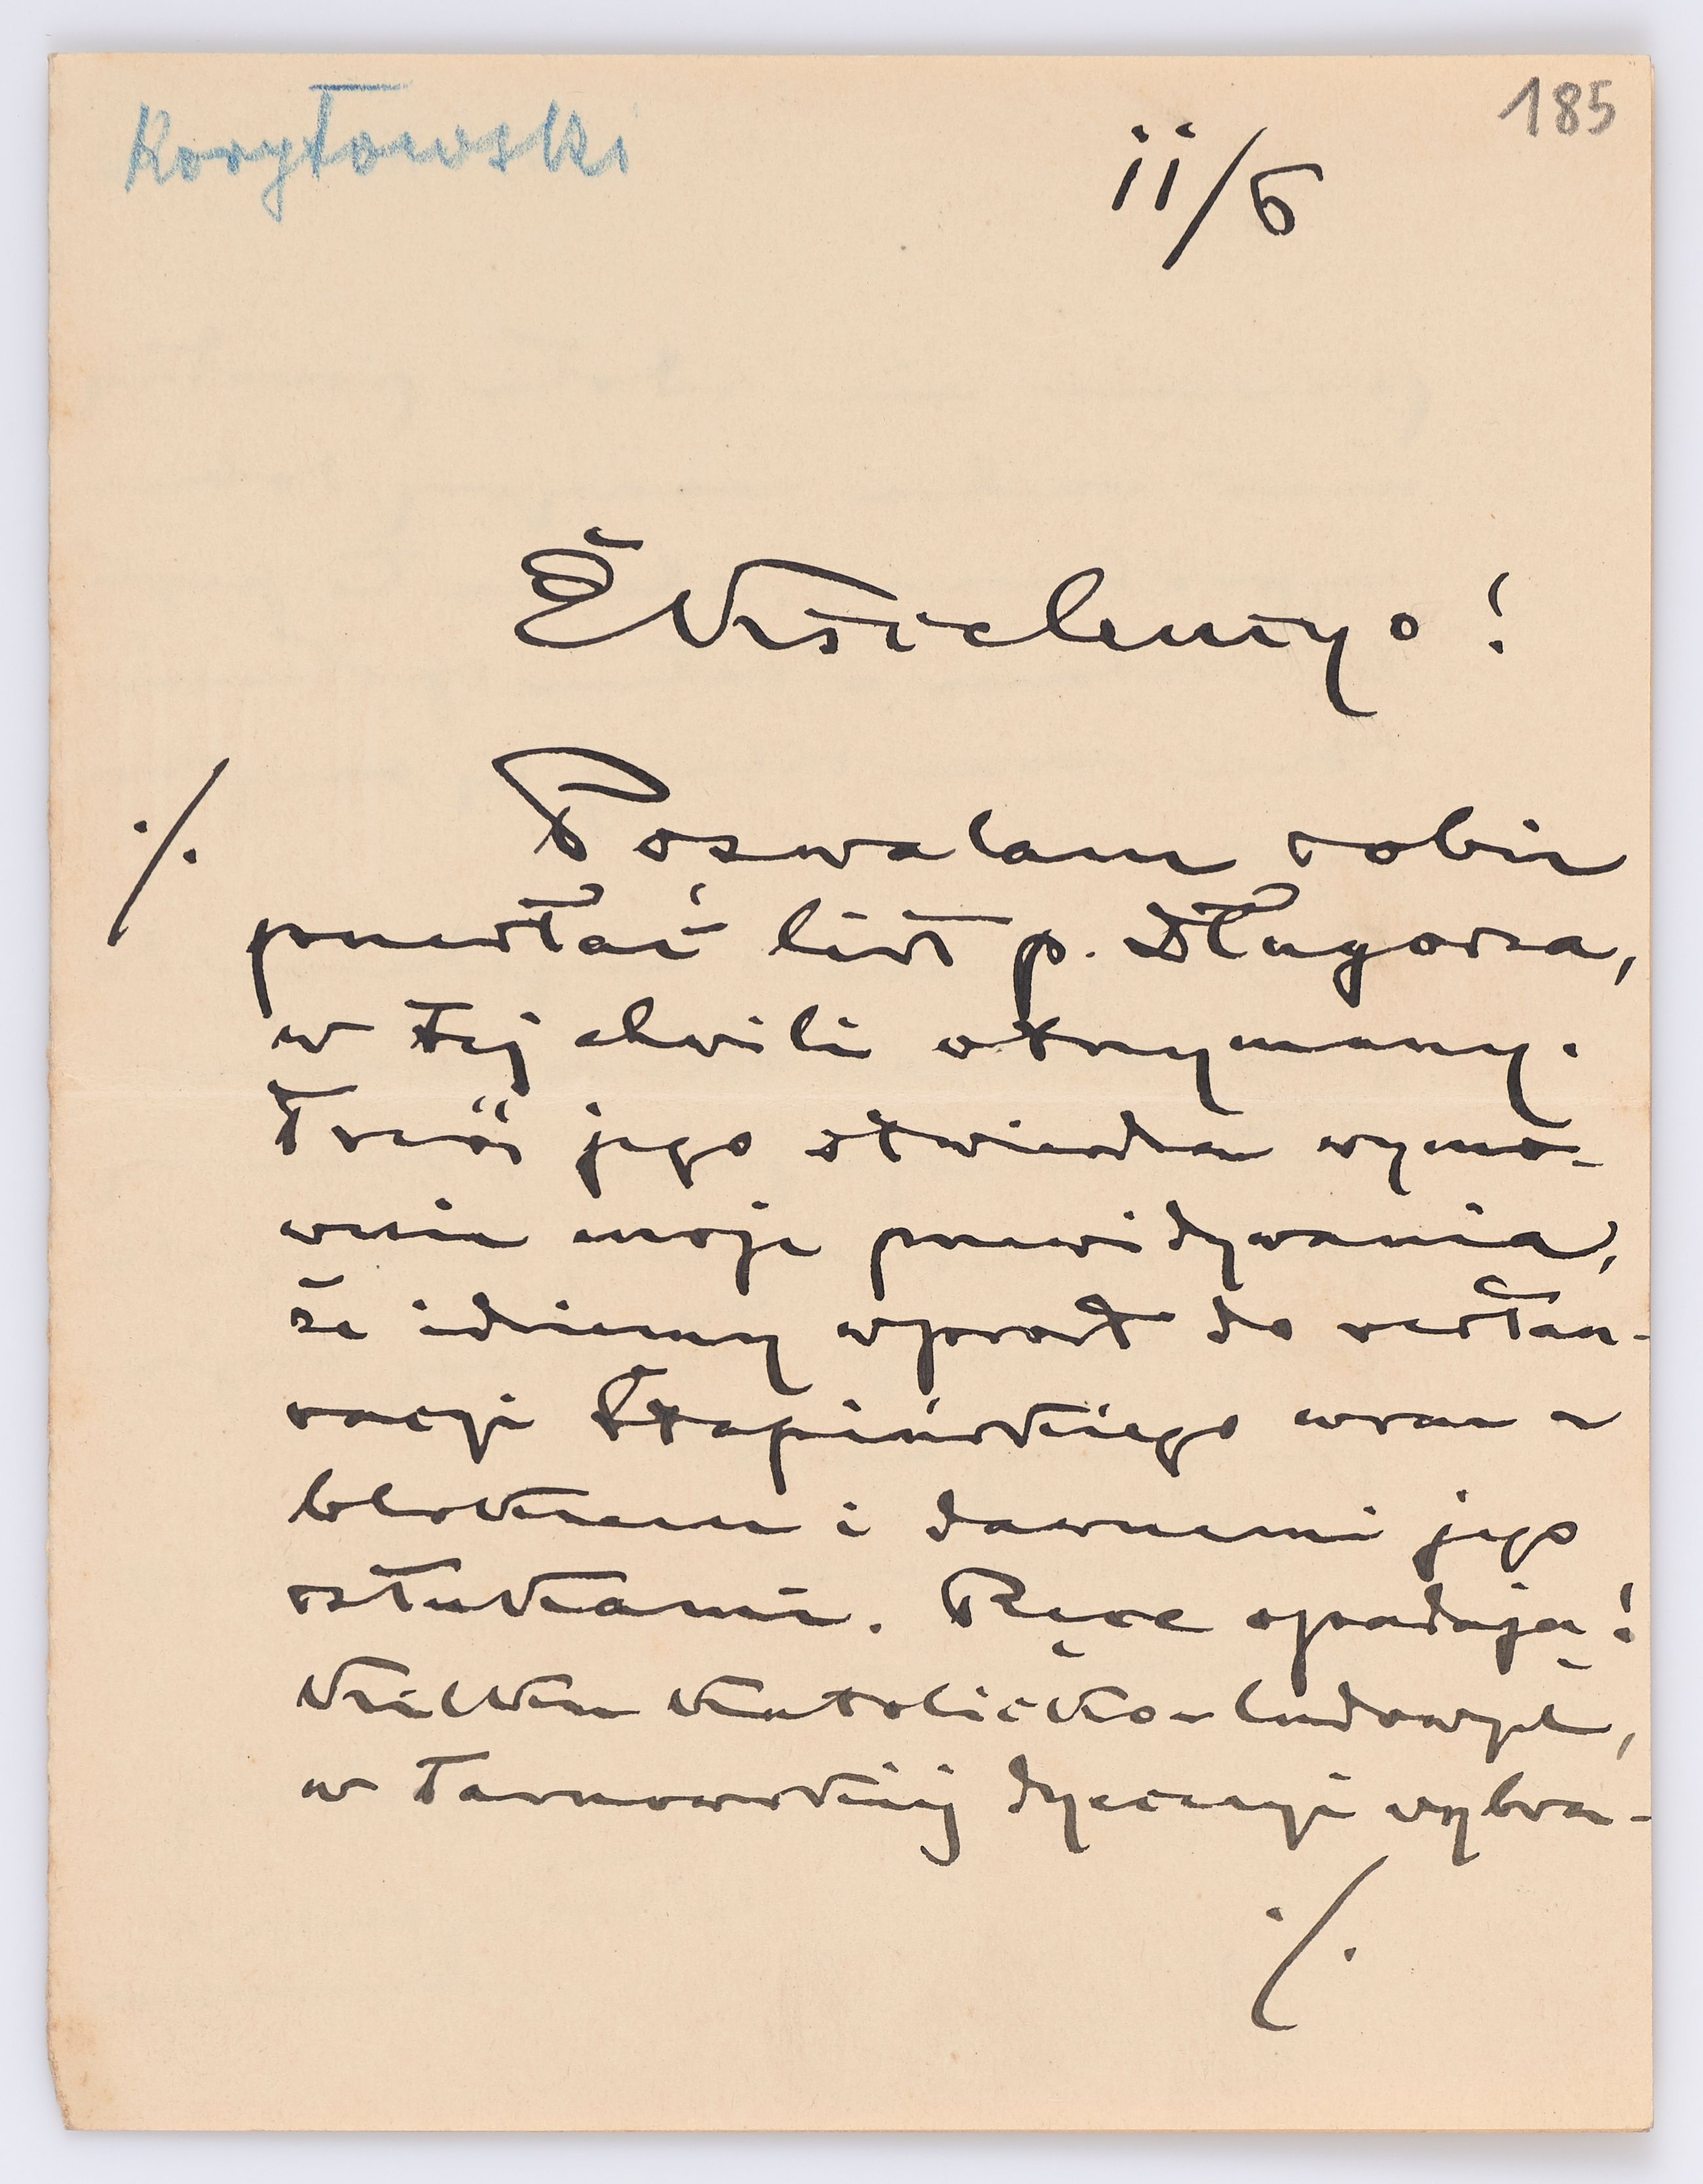 Korytowski
185
11/6
Ekscelencyo!
./. Pozwalam sobie
przesłać list p. Długosza,
w tej chwili otrzymany.
Treść jego stwierdza wymo-
wnie moje przewidywania,
że idziemy wprost do restau-
racyi Stapińskiego wraz z
blokiem i dawnemi jego
sztukami. Ręce opadają!
Kilku katolicko-ludowych,
w Tarnowskiej dyecezyi wybra-
./.